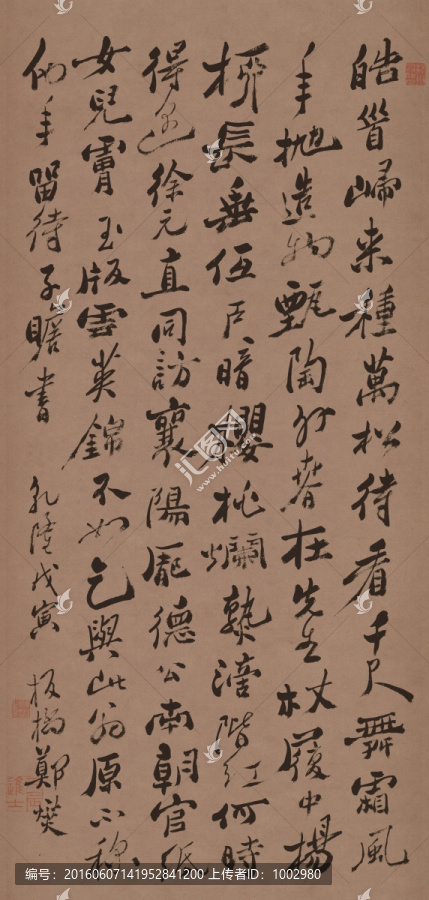 皓首歸来種萬松待看千尺舞霜風
年拋造物甄陶外春在先生杖履中楊
柳長垂低戶暗櫻桃爛熟滴階紅何時
得徐元直同訪襄陽龐德公南朝官紙
女兒膚玉版雲英錦不如乞與此翁原不稱
他年留待子瞻書 乾隆戊寅 板橋鄭燮
汇图网
www.huitu.com
编号:20160607141952841200 上传者ID:1002980